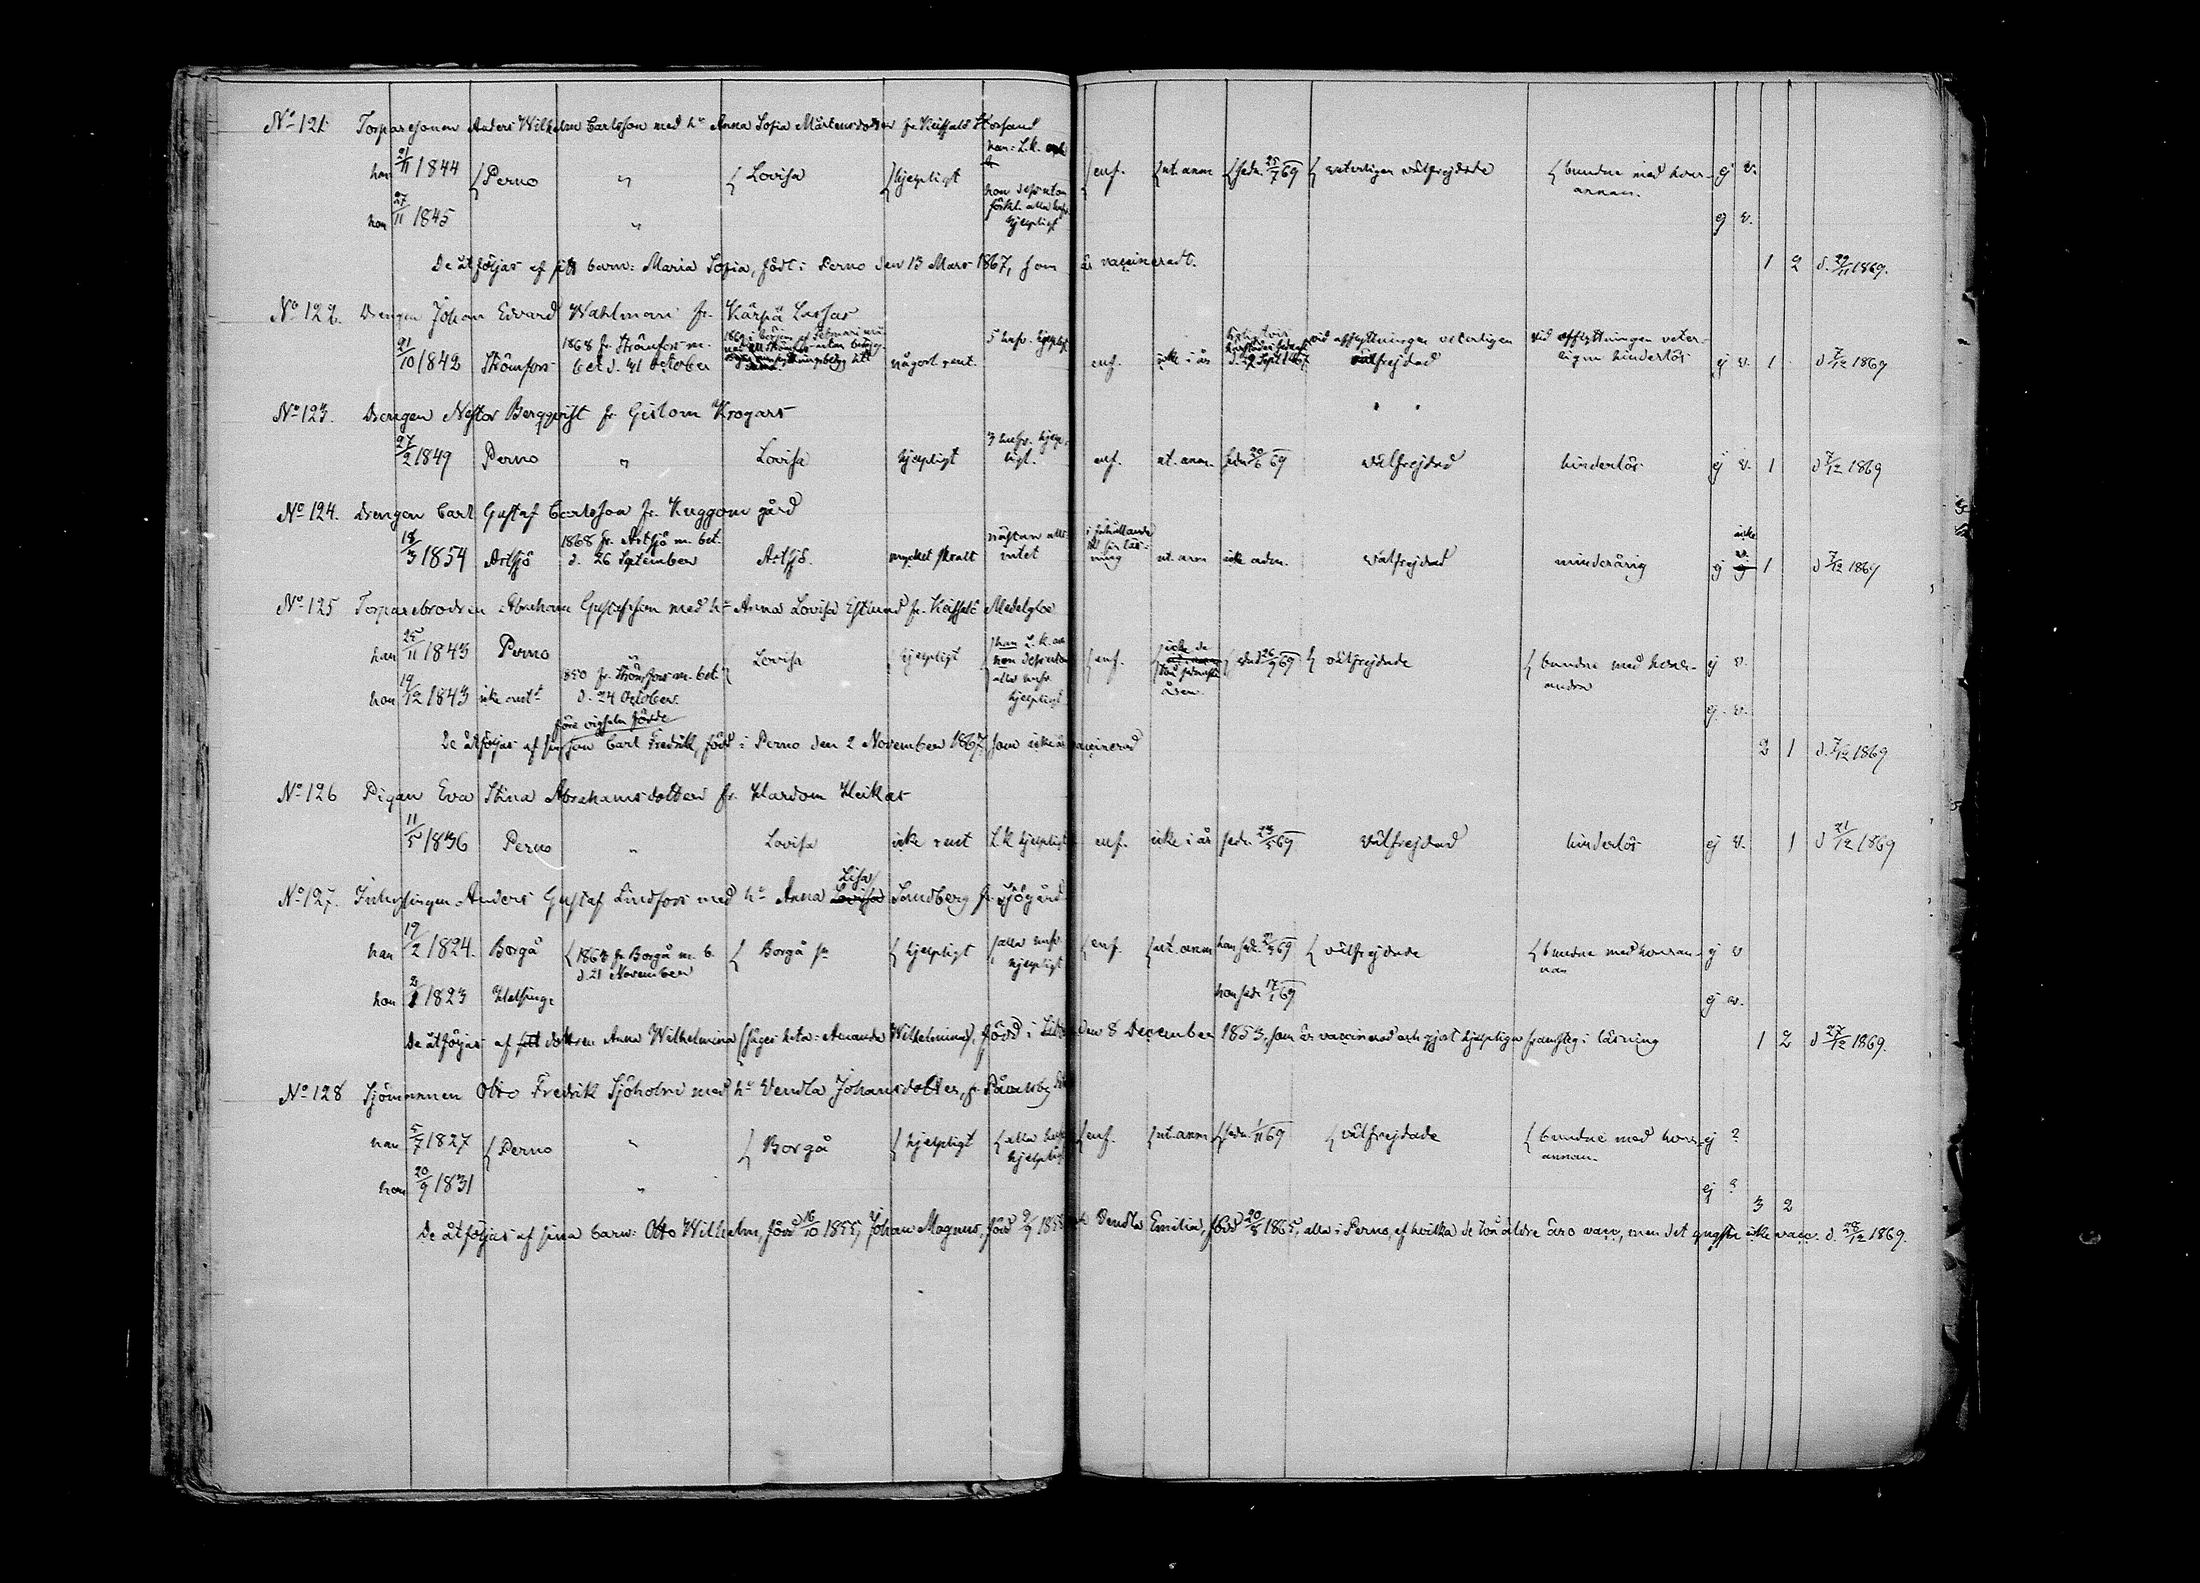 No 121. Torparesonen Anders Wilhelm Carlsson med h. Anna Sofia Mårtensdotter fr Storsand
han 21/11 1844 { Perno " { Lovisa { hjelpligt han: L.k. { enf. { nt. anm { sedn. 25/7 69 { veterligen välfrejdade { bundne med hvarannan. ej v.
hon 27/11 1845 " hon dessutom förkl. alla hufv. hjelpligt ej v.
De åtföljas af sitt barn: Maria Sofia, född i Perno den 13 Mars 1867, som är vaccineradt. 1 2 d. 29/11 1869.
No 122. Drengen Johan Edvard Wahlman fr. Kärpä Lassas
21/10 1842 Strömfors 1868 fr. Strömfors m. bet d. 31 October något rent. 5 hufv. hjelpligt enf. icke i år vid afflyttningen veterligen välfrejdad vid afflyttningen veterligen hinderlös ej v. 1 d 7/12 1869
No 123. Drengen Nestor Bergqvist fr Gislom Krogars
27/2 1849 Perno " Lovisa hjelpligt 3 hufv. hjelpligt. enf. nt. anm. sedn 20/6 69 välfrejdad hinderlös ej v. 1 d 7/12 1869
No 124. Drengen Carl Gustaf Carlsson fr. Kuggom gård
18/3 1854 Artsjö 1868 fr. Artsjö m. bet. d. 26 September Artsjö. mycket skralt nästan alls intet i förhållande till sin läsning nt. anm icke adm. välfrejdad minderårig ej icke v. 1 d 7/12 1869
No 125 Torparebrodren Abraham Gustafsson med h. Anna Lovisa Estlund fr. Medelgloe
han 25/11 1843 Perno " { Lovisa { hjelpligt { han L.k. och hon dessutom alla hufv. hjelpligt { enf. { icke de två sednaste åren. { sedn 26/9 69 { välfrejdade { bundne med hvarandra ej v.
hon 19/12 1843 icke ant. 1850 fr. Strömfors m. bet. d. 24 October. ej v.
De åtföljas af sin före vigseln födde son Carl Fredrik, född i Perno den 2 November 1867, som icke är vaccinerad 2 1 d. 7/12 1869
No 126 Pigan Eva Stina Abrahamsdotter fr. Hardom Heikas
11/5 1836 Perno " Lovisa icke rent L.k hjelpligt enf. icke i år sedn. 23/5 69 välfrejdad hinderlös ej v. 1 d 21/12 1869
No 127. Inhysingen Anders Gustaf Lindfors med h. Anna Lisa Sandberg fr. Sjögård
han 19/2 1824. Borgå { 1868 fr Borgå m. b. d. 21 November { Borgå sn { hjelpligt { alla hufv. hjelpligt { enf. { nt. anm han sedn. 69 { välfrejdade { bundne med hvarannan ej v
hon 1823 Helsinge hon sedn 17/1 69 ej v.
De åtföljas af dottren Anna Wilhelmina (säges heta: Amanda Wilhelmina), född i den 8 December 1853, som är vaccinerad och gjort hjelpliga framsteg i läsning 1 2 d 27/12 1869.
No 128 Sjömannen Otto Fredrik Sjöholm med h. Vendla Johansdotter, fr.
han 5/7 1827 { Perno " { Borgå { hjelpligt { alla hufv. hjelpligt { enf. { nt. anm { sedn. 1/11 69 { välfrejdade { bundne med hvarannan. ej ?
hon 20/9 1831 " ej ?
3 2
De åtföljas af sina barn: Otto Wilhelm, född 16/10 1855, Johan Magnus, född 2/9 1858 Vendla Emilia, född 20/8 1865, alla i Perno, af hvilka de två äldre äro vacc, men det yngsta icke vacc. d. 28/12 1869.